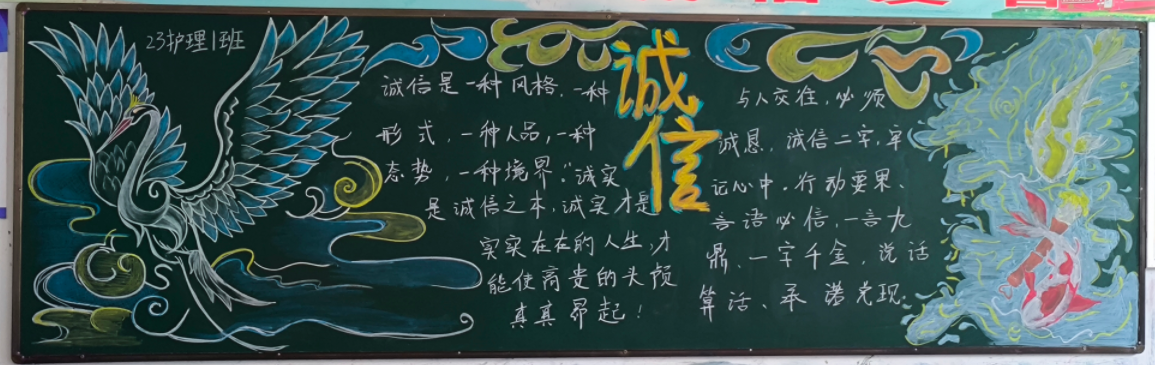 23护理1班
诚信
诚信是一种风格，一种
形式，一种人品，一种
态势，一种境界：诚实
是诚信之本，诚实才是
实实在在的人生，才
能使高贵的头颅
真真昂起！
与人交往，必须
诚恳，诚信二字，牢
记心中，行动要果、
言语必信，一言九
鼎、一字千金，说话
算话、承诺兑现。